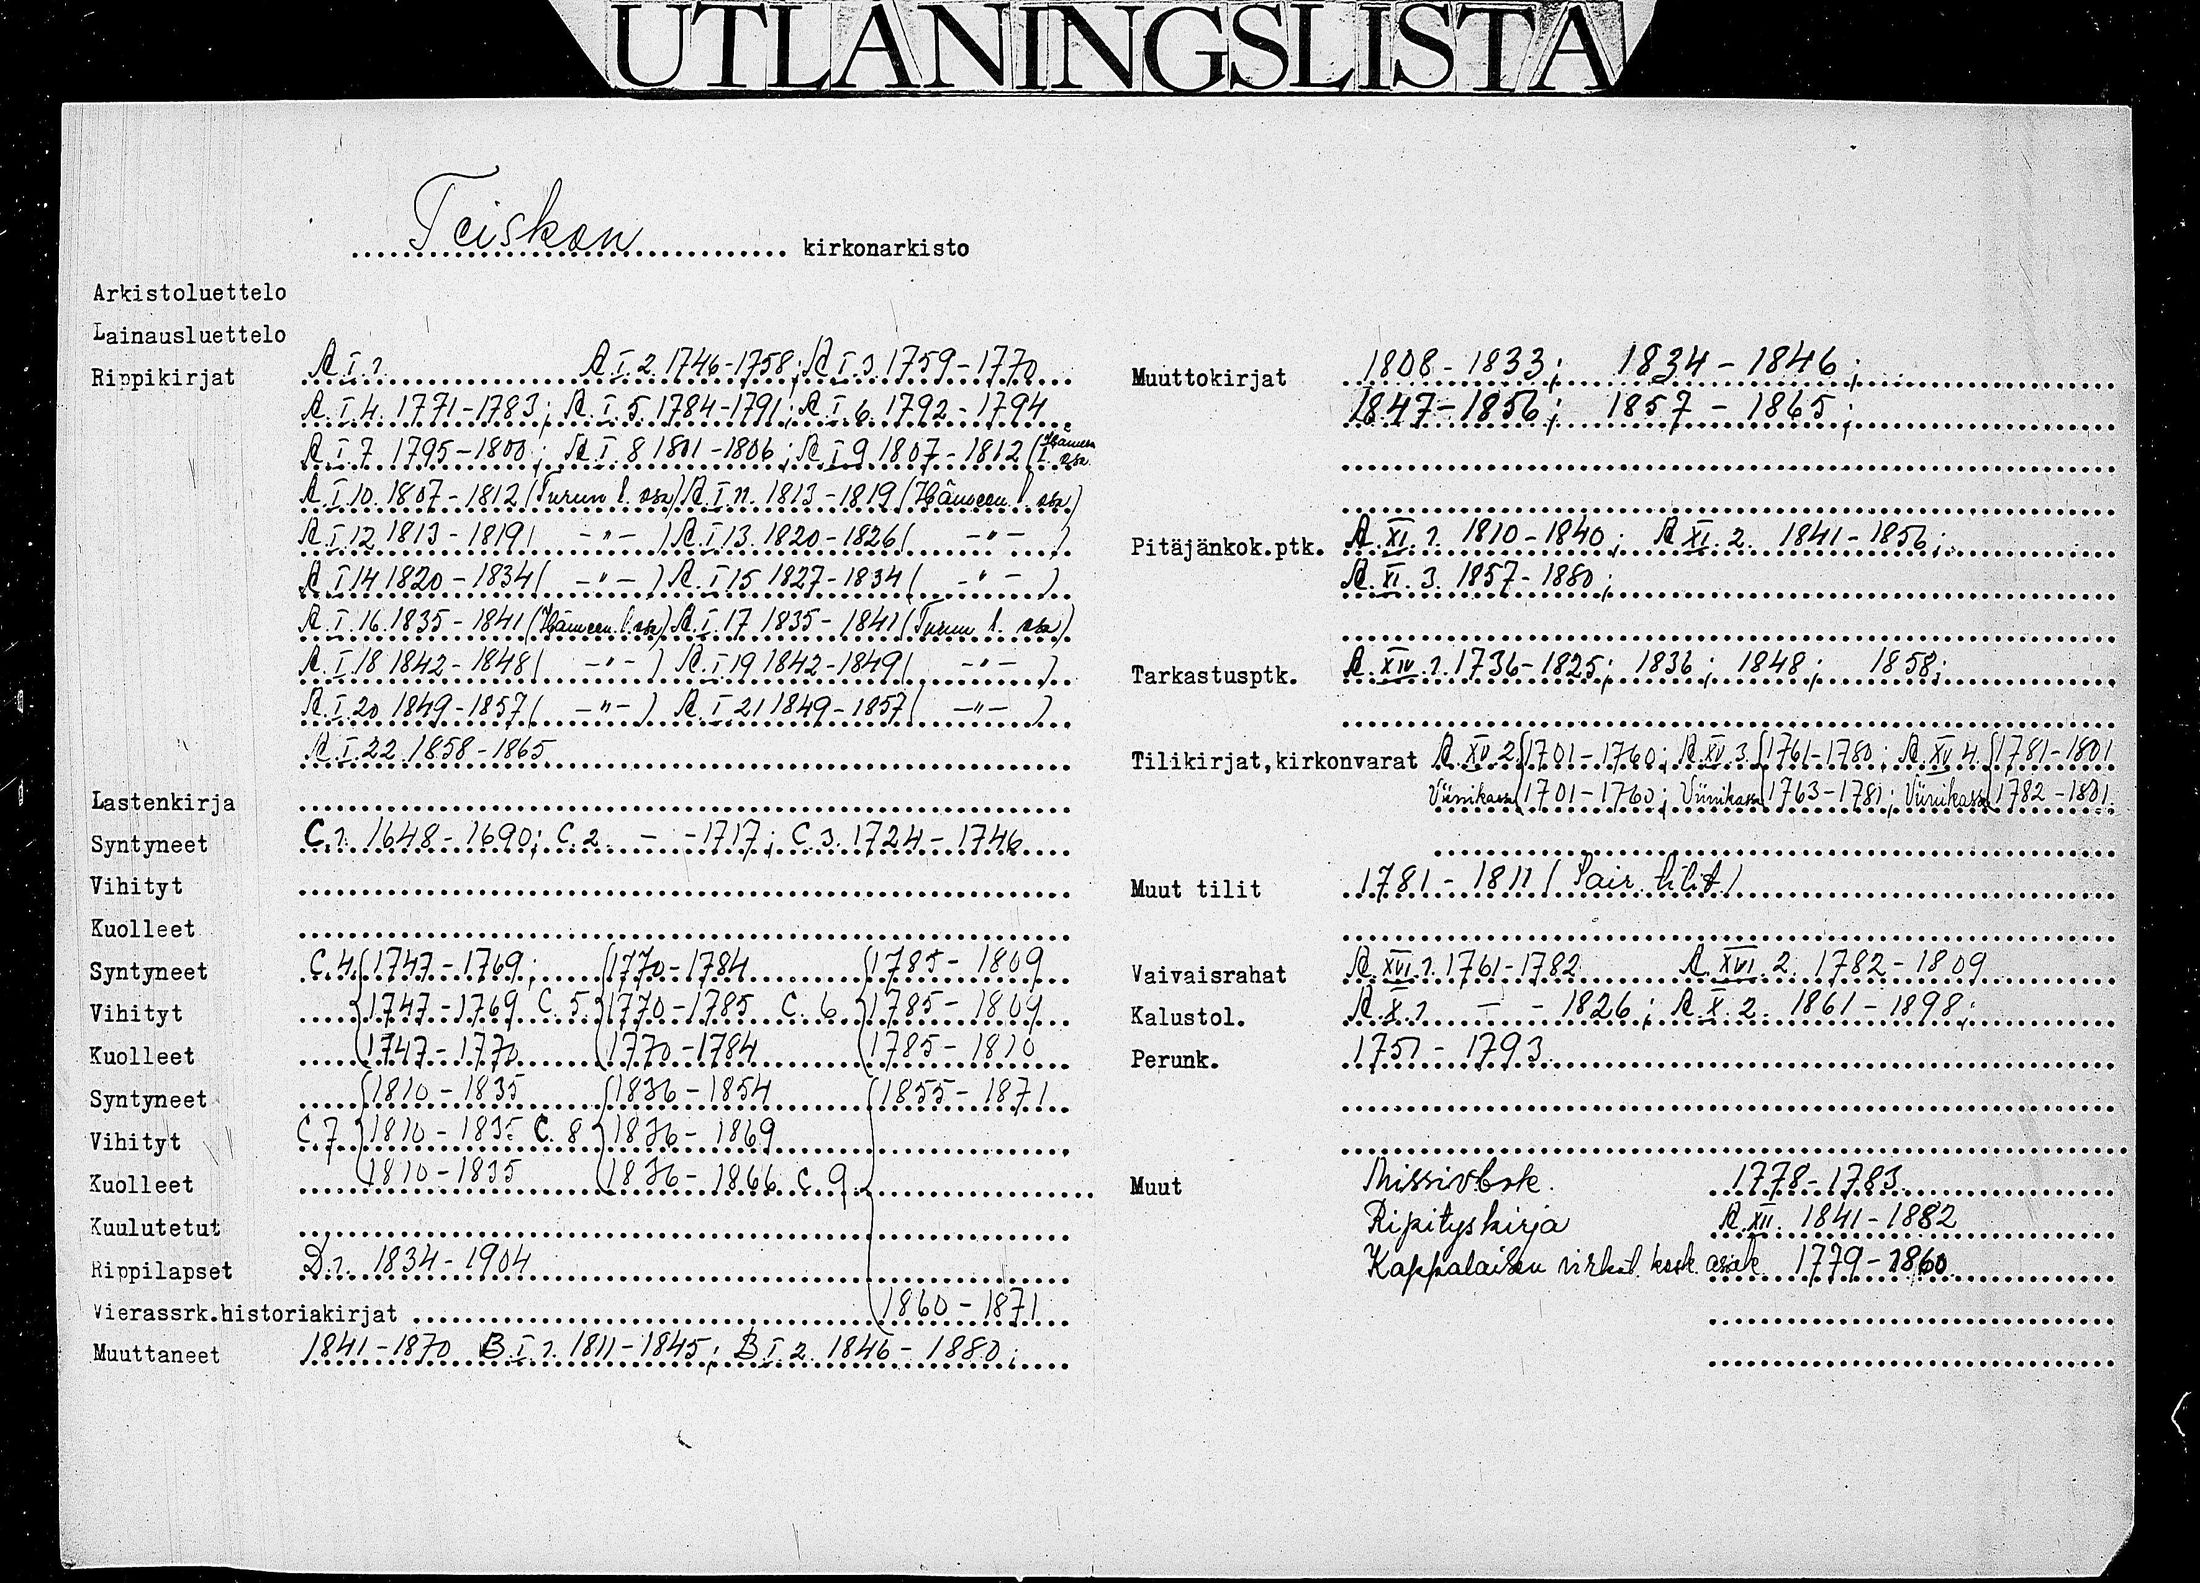 UTLÅNINGSLISTA
Teiskon kirkonarkisto
Arkistoluettelo
Lainausluettelo
Rippikirjat A.I.1. A.I.2. 1746-1758; A.I.3. 1759-1770
A.I.4. 1771-1783; A.I.5. 1784-1791; A.I.6. 1792-1794
A.I.7 1795-1800; A.I.8 1801-1806; A.I.9 1807-1812 (Hämeen l. osa
A.I.10. 1807-1812 (Turun l. osa) A.I.11. 1813-1819 (Hämeen l. osa)
A.I.12 1813-1819 ( -"- ) A.I.13. 1820-1826 ( -"- )
A.I.14 1820-1834 ( -"- ) A.I.15 1827-1834 ( -"- )
A.I.16. 1835-1841 (Hämeen l. osa) A.I.17 1835-1841 (Turun l. osa)
A.I.18 1842-1848 ( -"- ) A.I.19 1842-1849 ( -"- )
A.I.20 1849-1857 ( -"- ) A.I.21 1849-1857 ( -"- )
A.I.22. 1858-1865
Lastenkirja
Syntyneet C.1. 1648-1690; C.2. - -1717; C.3. 1724-1746
Vihityt
Kuolleet
Syntyneet C.4. 1747-1769; 1770-1784 1785-1809
Vihityt 1747-1769 C.5. 1770-1785 C.6. 1785-1809
Kuolleet 1747-1770 1770-1784 1785-1810
Syntyneet 1810-1835 1836-1854 1855-1871
Vihityt C.7. 1810-1835 C.8 1836-1869
Kuolleet 1810-1835 1836-1866 C.9.
Kuulutetut
Rippilapset D.1. 1834-1904
Vierassrk.historiakirjat 1860-1871
Muuttaneet 1841-1870 B.I.1. 1811-1845; B.I.2. 1846-1880;
Muuttokirjat 1808-1833; 1834-1846;
1847-1856; 1857-1865;
Pitäjänkok.ptk. A.XI.1. 1810-1840; A.XI.2. 1841-1856;
A.XI.3. 1857-1880;
Tarkastusptk. A.XIV.1. 1736-1825; 1836; 1848; 1858;
Tilikirjat,kirkonvarat A.XV.2. 1701-1760; A.XV.3. 1761-1780; A.XV.4. 1781-1801
Viinikassa 1701-1760; Viinikassa 1763-1781; Viinikassa 1782-1801.
Muut tilit 1781-1811 (Sair. tilit)
Vaivaisrahat A.XVI.1. 1761-1782 A.XVI.2. 1782-1809
Kalustol. A.X.1. - - 1826; A.X.2. 1861-1898;
Perunk. 1751-1793
Muut Missivbok. 1778-1783
Ripityskirja A.XII. 1841-1882
Kappalaisen virkat. kosk. asiak. 1779-1860